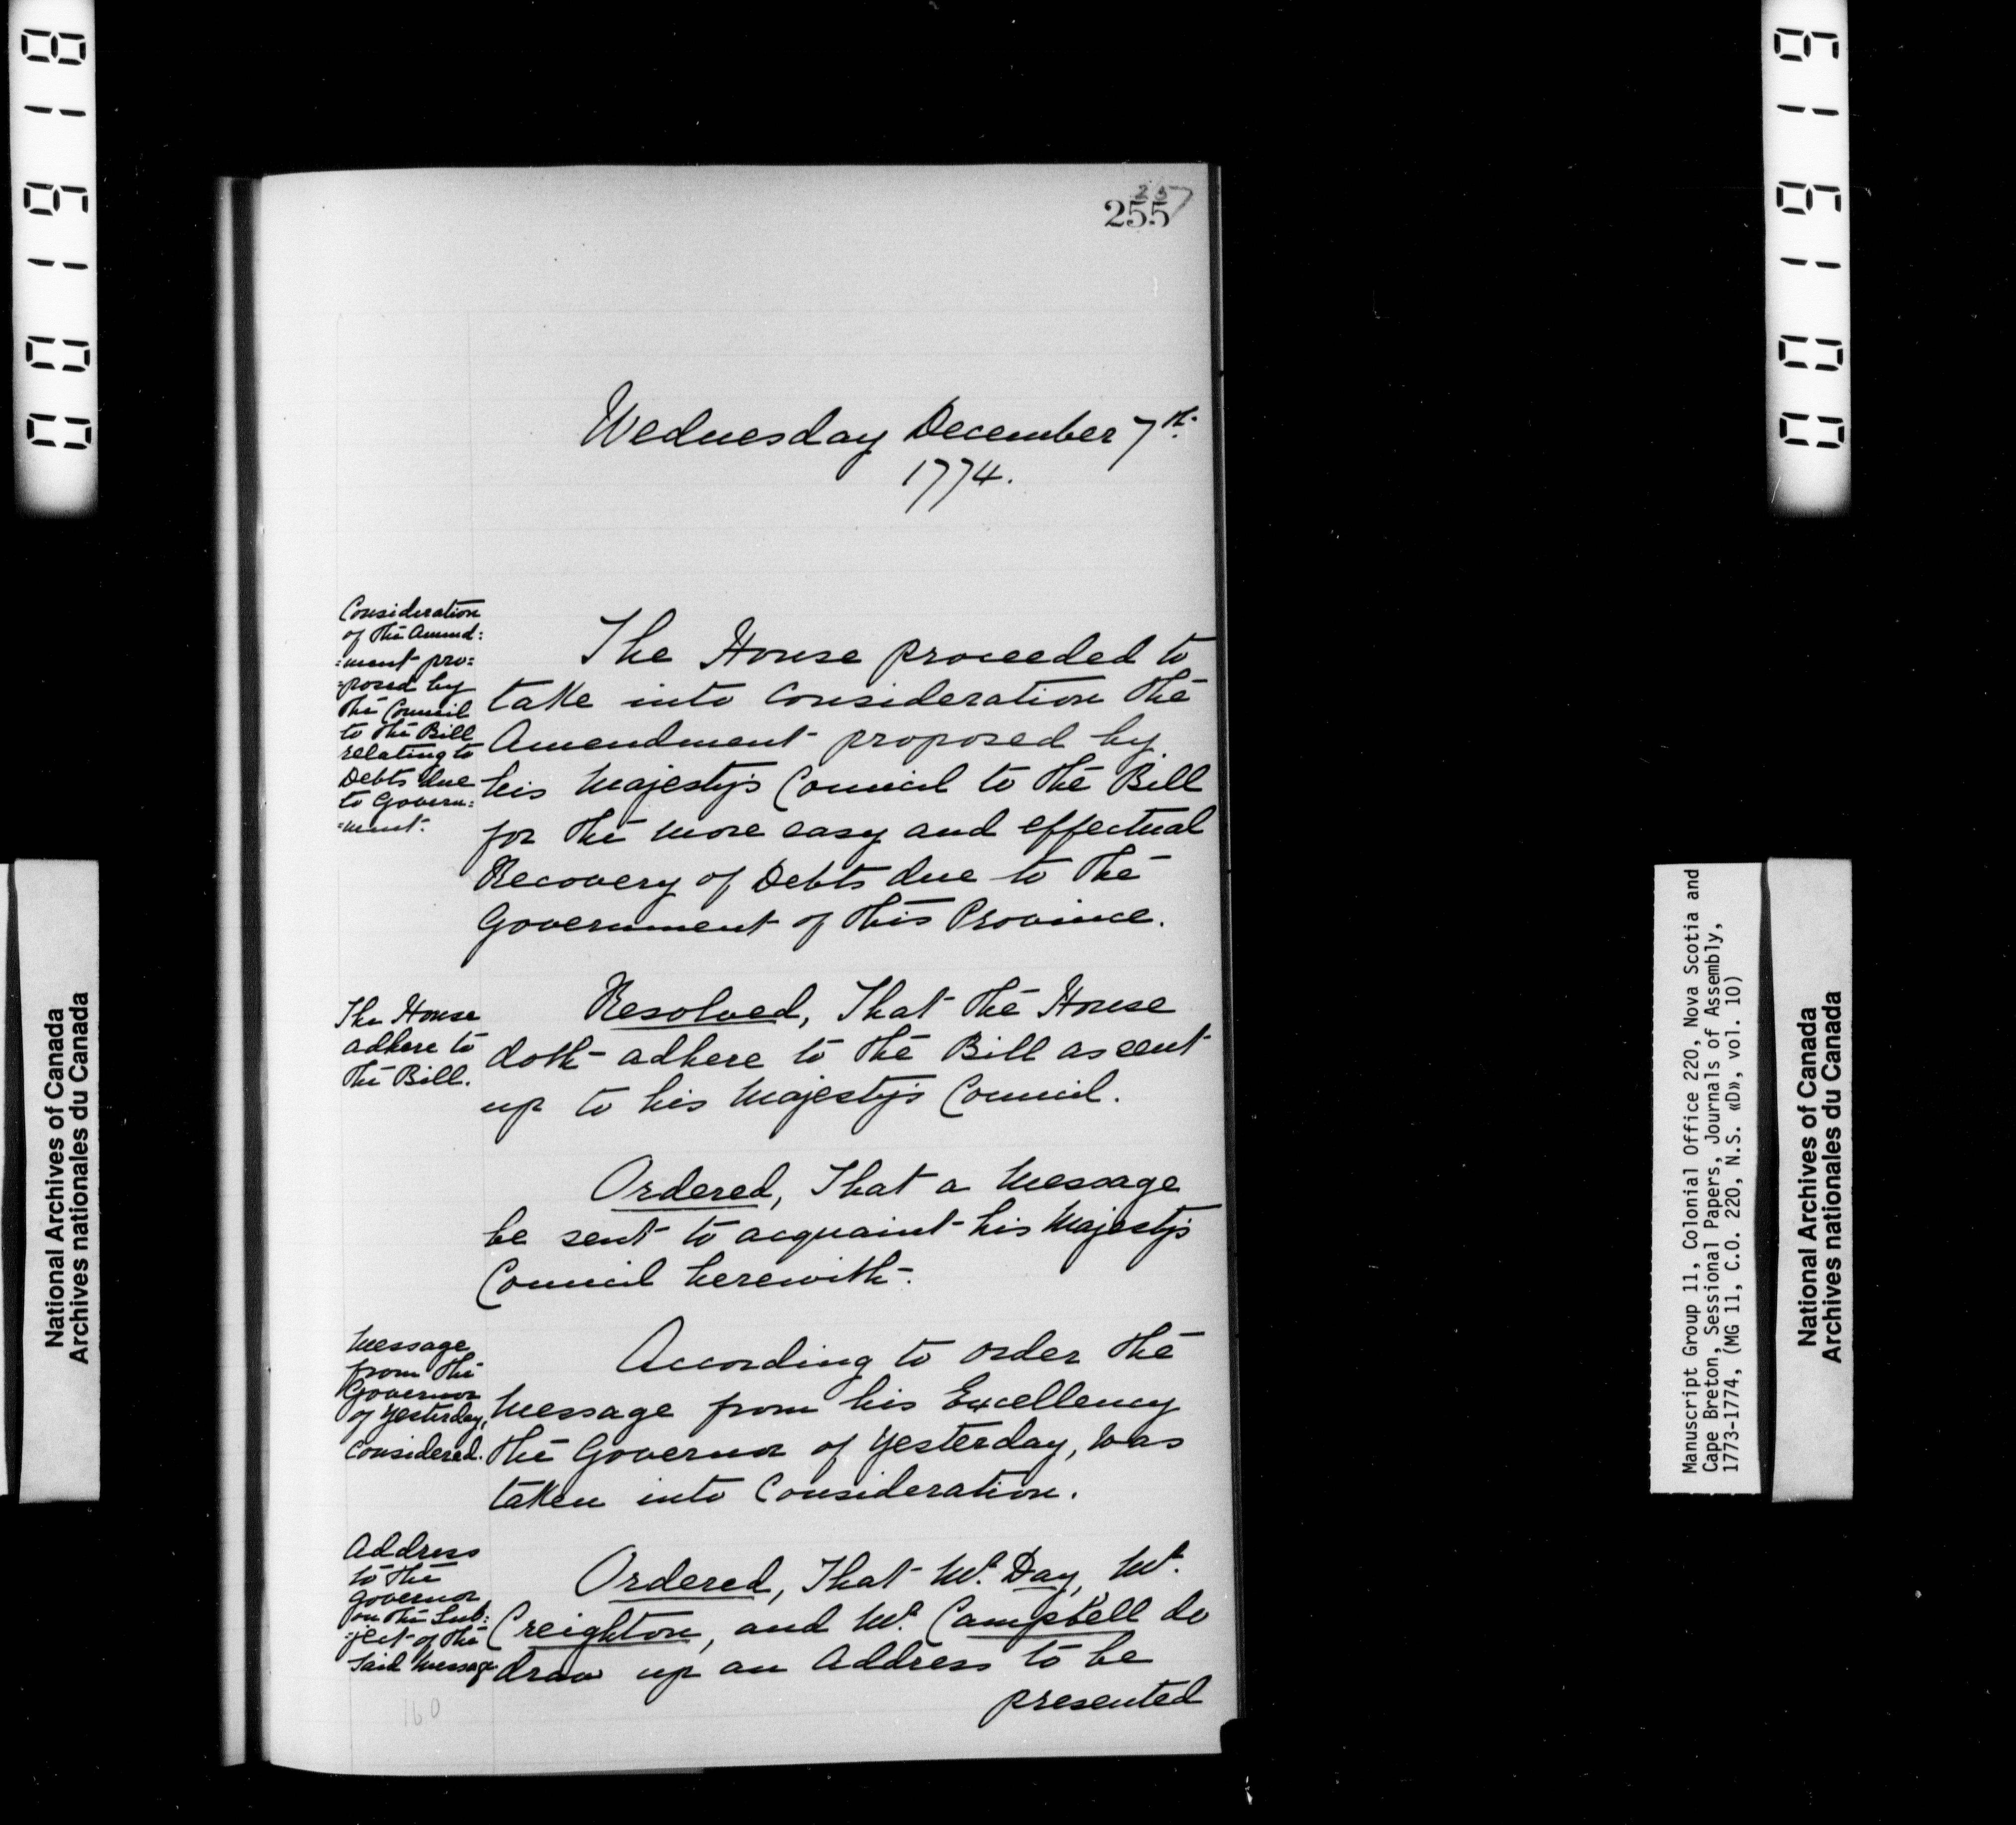 257
255
Wednesday December 7th.
1774.
Consideration
of the Amend:
=ment pro:
=posed by
the Council
to the Bill
relating to
Debts due
to Govern:
=ment.
The House proceeded to
take into Consideration the
Amendment proposed by
his Majesty's Council to the Bill
for the more easy and effectual
Recovery of Debts due to the
Government of this Province.
The House
adhere to
the Bill.
Resolved, That the House
doth adhere to the Bill as sent
up to his Majesty's Council.
Ordered, That a Message
be sent to acquaint his Majesty's
Council herewith.
Message
from the
Governor
of Yesterday,
Considered.
According to order the
Message from his Excellency
the Governor of Yesterday, was
taken into Consideration.
Address
to the
Governor
on the Sub:
=ject of the
Said Message
Ordered, That Mr. Day, Mr.
Creighton, and Mr. Campbell do
draw up an Address to be
presented
160
National Archives of Canada
Archives nationales du Canada
Manuscript Group 11, Colonial Office 220, Nova Scotia and
Cape Breton, Sessional Papers, Journals of Assembly,
1773-1774, (MG 11, C.O. 220, N.S. «D», vol. 10)
National Archives of Canada
Archives nationales du Canada